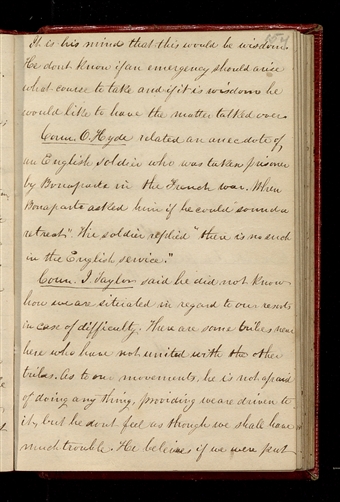 It is his mind that this would be wisdom.
He dont know if an emergency should arise
what course to take and if it is wisdom he
would like to have the matter talked over.
Coun. O. Hyde related an anecdote of
an English soldier who was taken prisoner
by Bonaparte in the French war. When
Bonaparte asked him if he could sound a
retreat". The soldier replied "there is no such
in the English service."
Coun. J. Taylor said he did not know
how we are situated in regard to our resorts
in case of difficulty. There are some tribes near
here who have not united with the other
tribes. As to our movements, he is not afraid
of doing any thing, providing we are driven to
it, but he dont feel as though we shall have
much trouble. He believes if we were put